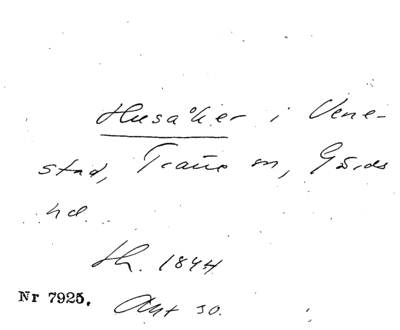 Husåker i Vene-
stad, Träne sn, Gärds
hd.
Th. 1844
Nr 7925. Akt 30.